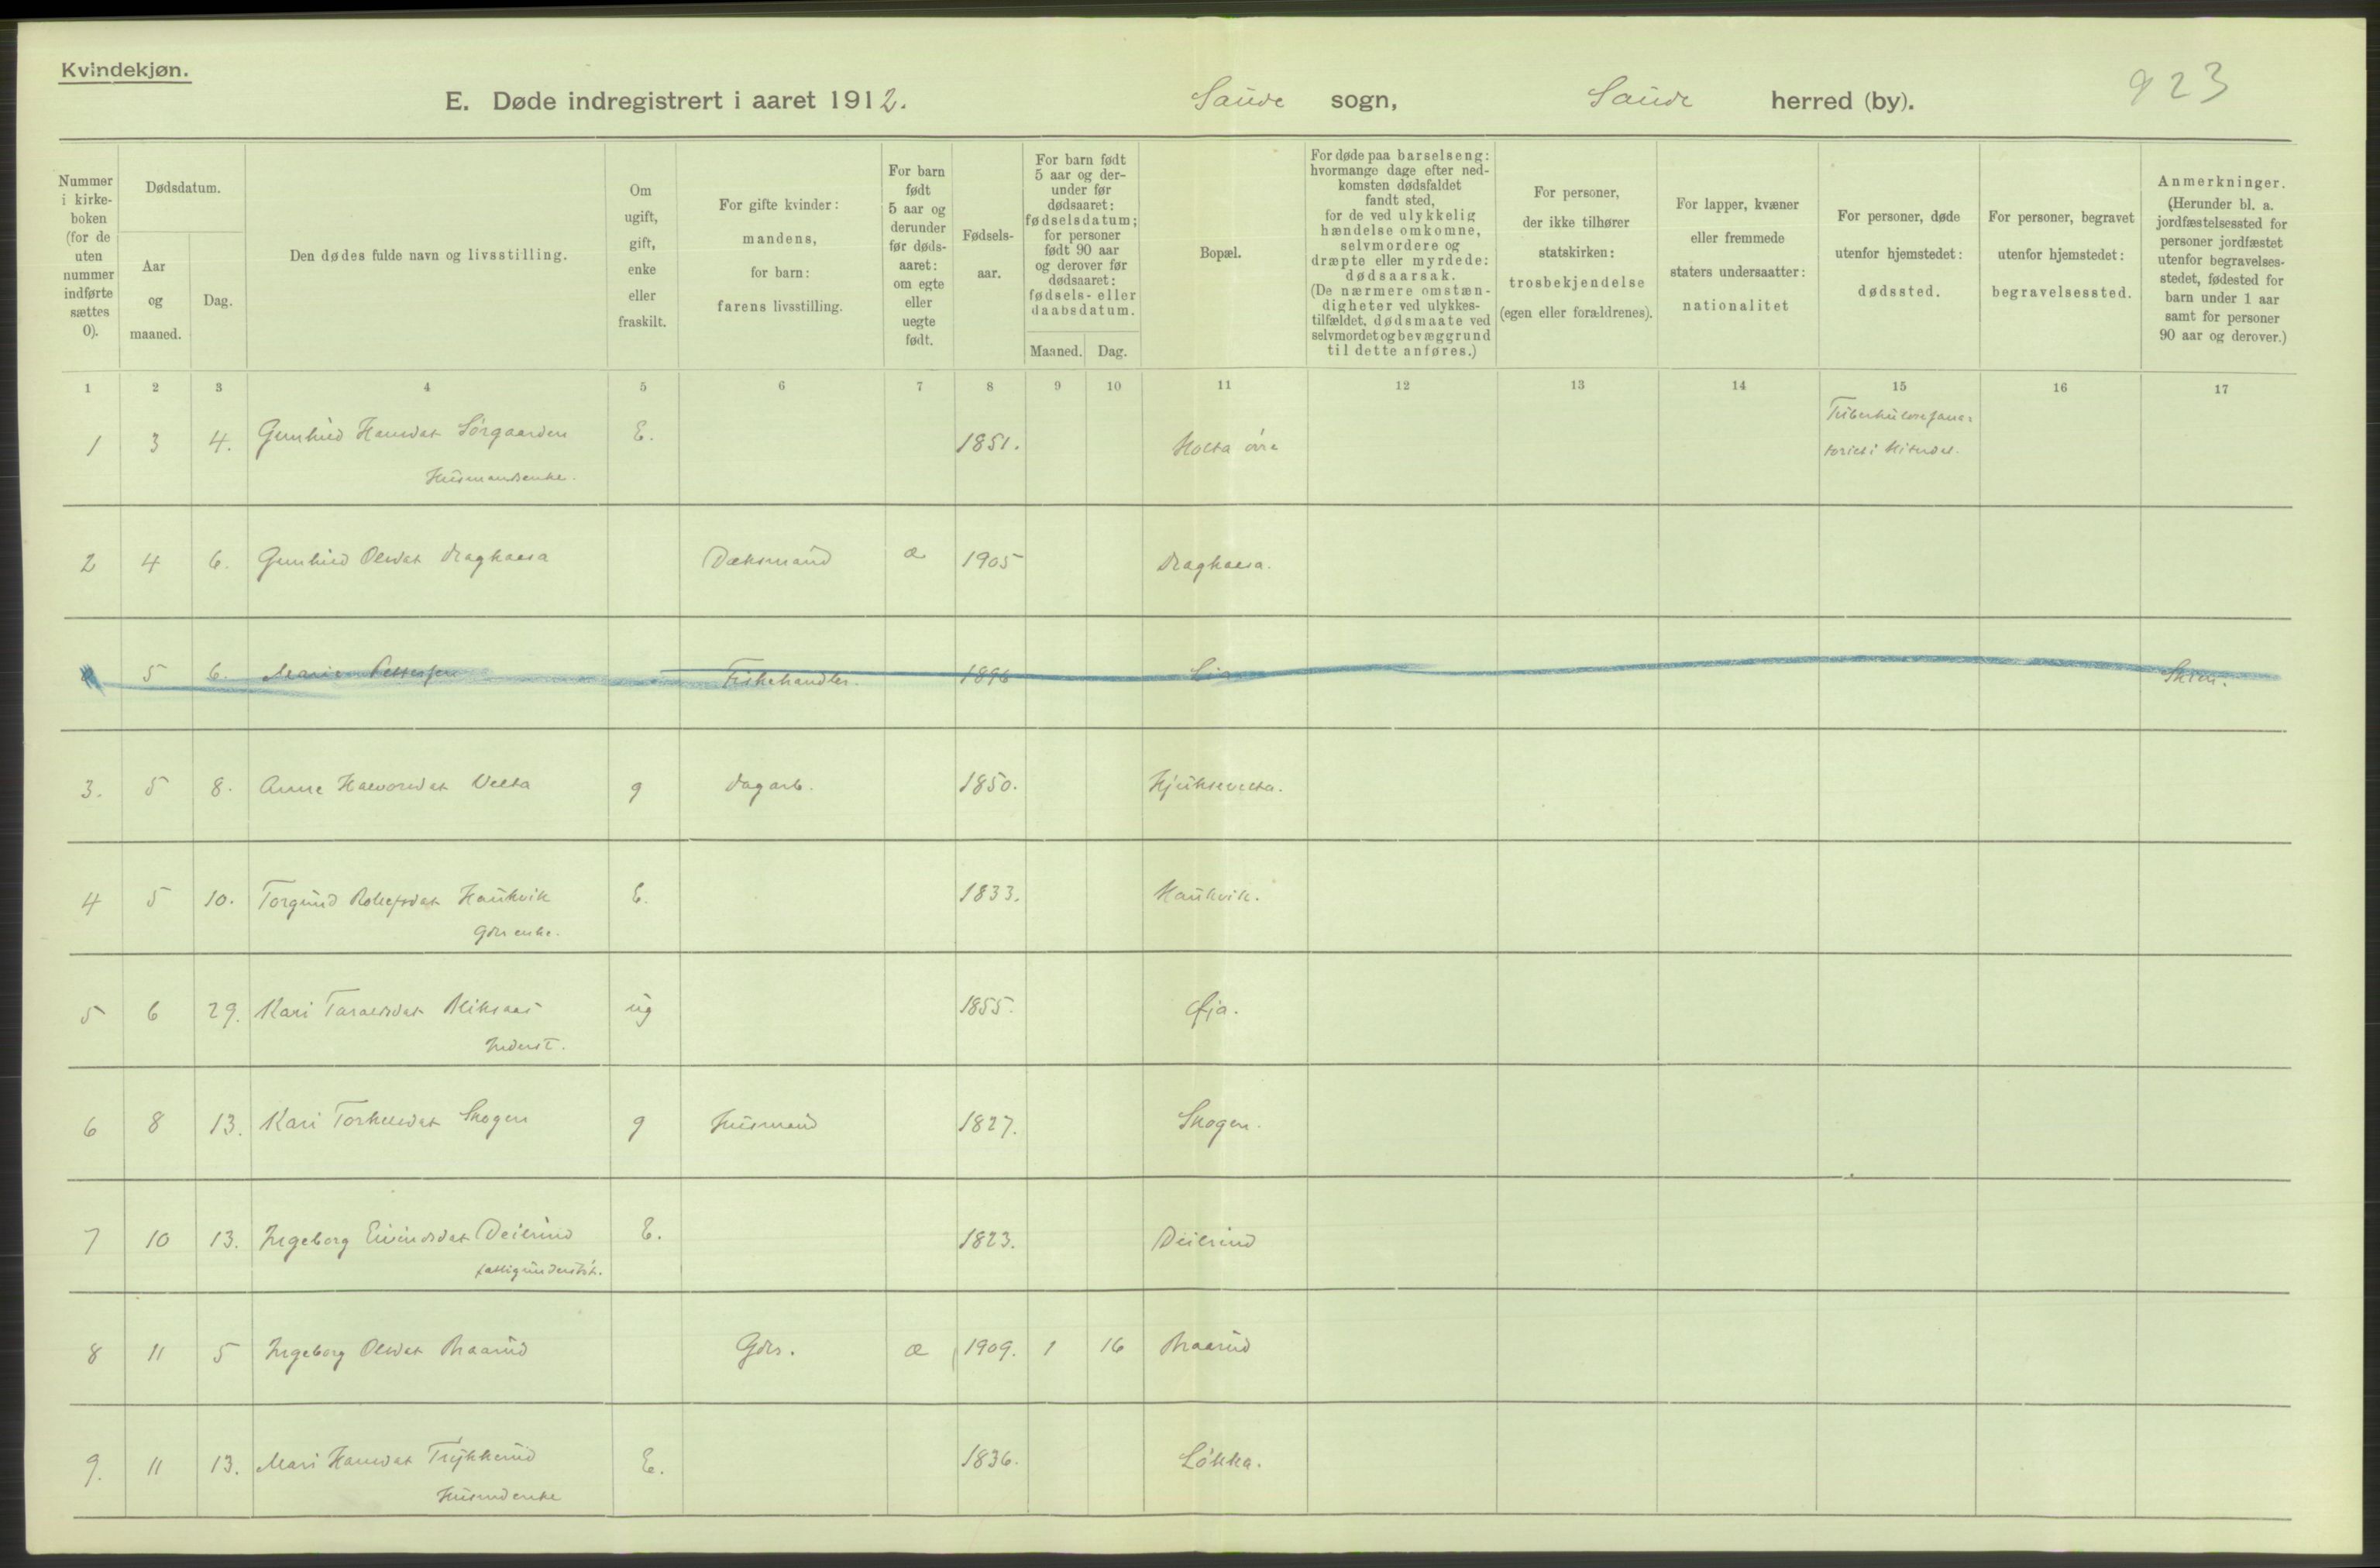 Kvindekjøn.
E. Døde indregistrert i aaret 1912. Saude sogn, Saude herred (by). 923
Nummer i kirkeboken (for de uten nummer indførte sættes 0).
Dødsdatum.
Aar og maaned.
Dag.
Den dødes fulde navn og livsstilling.
Om ugift, gift, enke eller fraskilt.
For gifte kvinder: mandens, for barn: farens livsstilling.
For barn født 5 aar og derunder før dødsaaret: om egte eller uegte født.
Fødselsaar.
For barn født 5 aar og derunder før dødsaaret: fødselsdatum; for personer født 90 aar og derover før dødsaaret: fødsels- eller daabsdatum.
Maaned. Dag.
Bopæl.
For døde paa barselseng: hvormange dage efter nedkomsten dødsfaldet fandt sted, for de ved ulykkelig hændelse omkomne, selvmordere og dræpte eller myrdede: dødsaarsak. (De nærmere omstændigheter ved ulykkestilfældet, dødsmaate ved selvmordet og bevæggrund til dette anføres.)
For personer, der ikke tilhører statskirken: trosbekjendelse (egen eller forældrenes).
For lapper, kvæner eller fremmede staters undersaatter: nationalitet
For personer, døde utenfor hjemstedet: dødssted.
For personer, begravet utenfor hjemstedet: begravelsessted.
Anmerkninger. (Herunder bl. a. jordfæstelsessted for personer jordfæstet utenfor begravelsesstedet, fødested for barn under 1 aar samt for personer 90 aar og derover.)
1 2 3 4 5 6 7 8 9 10 11 12 13 14 15 16 17
1 3 4. Gunhild Hansdat Sørgaarden E. 1851. Holta øvre
Husmandsenke.
2 4 6. Gunhild Olsdat 1905
5 6. Marie Pettersen Fiskehandler. 1896 Lia Skien.
3. 5 8. Anne Halvorsdat Velta g dagarb. 1850. Hjuksevelta.
4 5 10. Torgund Rolefsdat Haukvik E. 1833. Haukvik.
Gdrs enke.
5 6 29. Kari Taraldsdat Bliksaas ug 1855. Øia.
Inderst.
6 8 13. Kari Torkelsdat Skogen g husmand 1827. Skogen.
7 10 13. Ingeborg Eivindsdat Deilrind E. 1823. Deilrind
fattigunderstøt.
8 11 5 Ingeborg Olsdat Graarud Gdbr. æ 1909. 1 16 Graarud
9. 11 13. Mari Hansdat Trykkerud E. 1836. Løkka.
Husmdenke